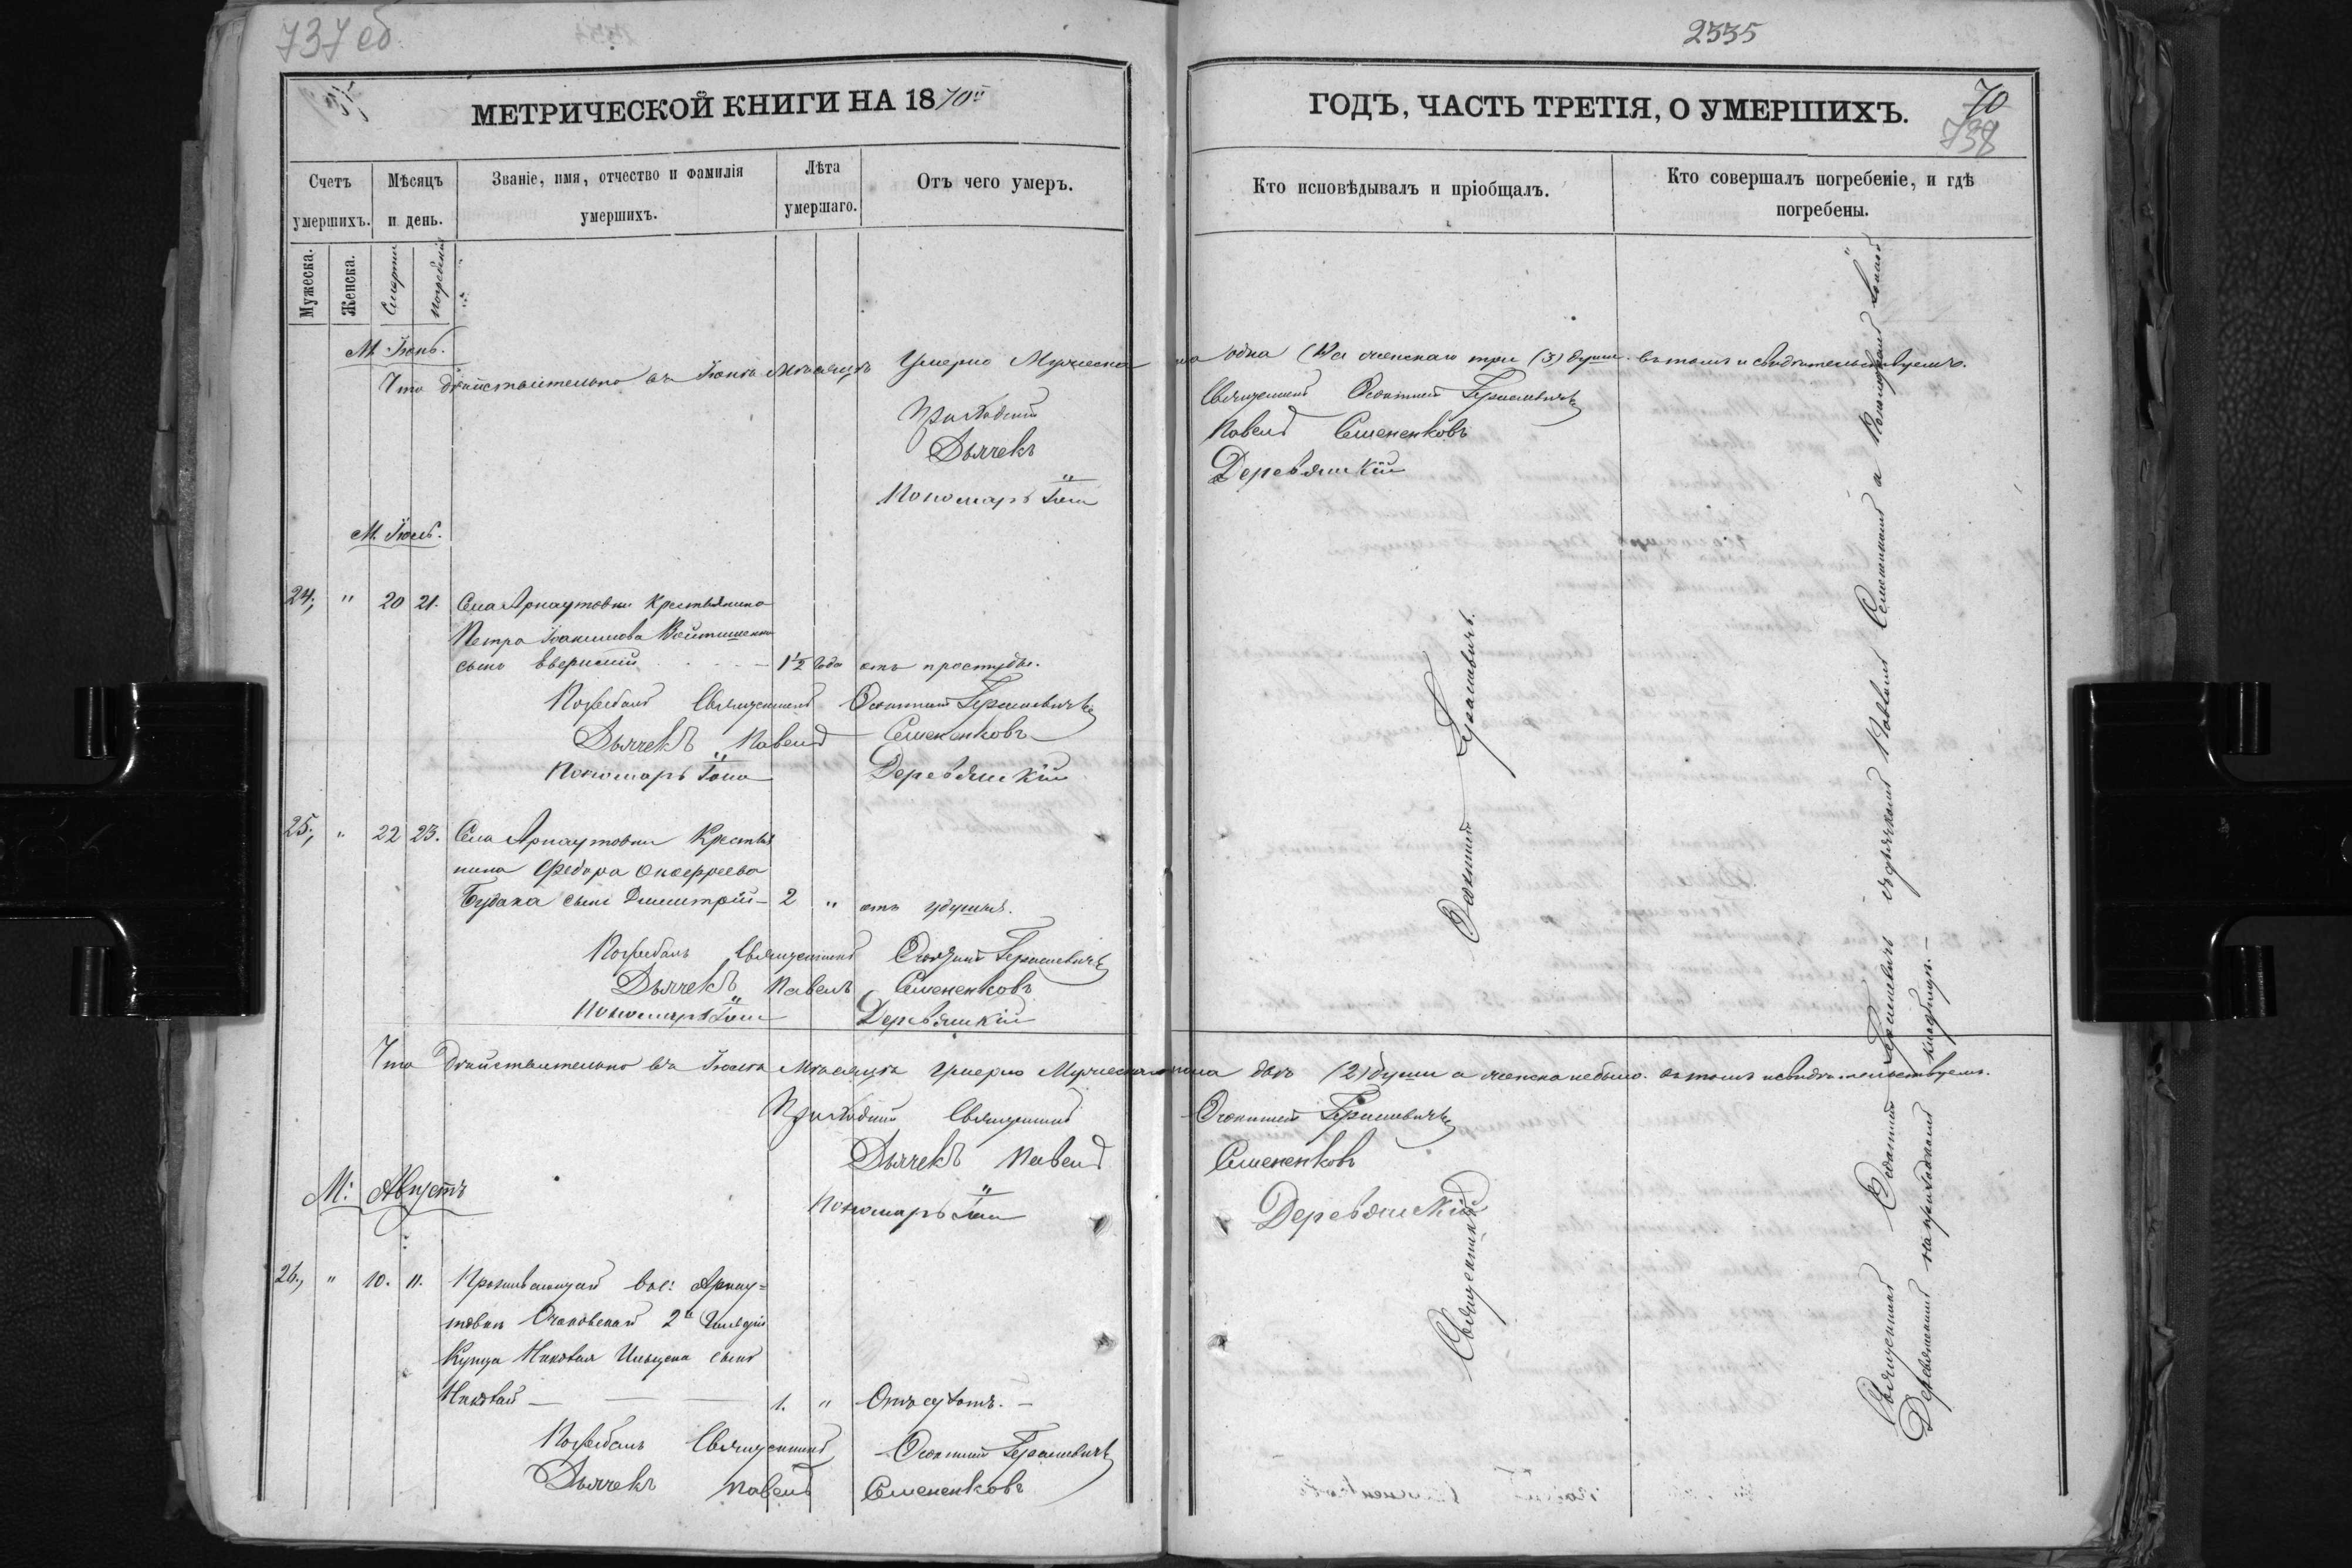 737 об
2335
МЕТРИЧЕСКОЙ КНИГИ НА 1870й
ГОДЪ, ЧАСТЬ ТРЕТІЯ, О УМЕРШИХЪ.
70
738
Счетъ умершихъ.
Мѣсяцъ и день.
Званіе, имя, отчество и фамилія умершихъ.
Лѣта умершаго.
Отъ чего умеръ.
Кто исповѣдывалъ и пріобщалъ.
Кто совершалъ погребеніе, и гдѣ погребены.
Мужеска.
Женска.
Смерти
Погребенія
М. Іюнь.
Что дѣйствительно въ Іюнѣ Мѣсяцѣ Умерло Мужеска пола одна (1) а женскаго три (3) души въ томъ и свидѣтельствуемъ.
Приходскій Священникъ Герасимовичъ
Дьячекъ Павелъ Семененковъ
Пономарь Іоаннъ Деревянскій
М. Іюль.
24, " 20 21. Села Арнаутовки Крестьянина
Петра Іоакимова
сынъ 1½ года отъ простуды.
Погребалъ Священникъ Герасимовичъ
Дьячекъ Павелъ Семененковъ
Пономарь Іоаннъ Деревянскій
25, " 22 23. Села Арнаутовки Крестья
нина Федора Онофреева
Будака сынъ Димитрій - 2 " отъ удушья.
Погребалъ Священникъ Герасимовичъ
Дьячекъ Павелъ Семененковъ
Пономарь Іоаннъ Деревянскій
Что дѣйствительно въ Іюлѣ Мѣсяцѣ Умерло Мужескаго пола двѣ (2) души а женска небыло. въ томъ и свидѣтельствуемъ.
Приходскій Священникъ Герасимовичъ
Дьячекъ Павелъ Семененковъ
Пономарь Іоаннъ Деревянскій
М: Августъ
26, " 10. 11. Проживающаго вс: Арнау=
товки Очаковскаго 2й Гильдіи
Купца Николая сынъ
Николай — 1. " Отъ сухотъ. -
Погребалъ Священникъ Герасимовичъ
Дьячекъ Павелъ Семененковъ
Священникъ Герасимовичъ.
Священникъ Герасимовичъ съ дьячкомъ Павломъ Семененковымъ и Пономаремъ Іоанномъ
Деревянскимъ на приходскомъ кладбищѣ. -